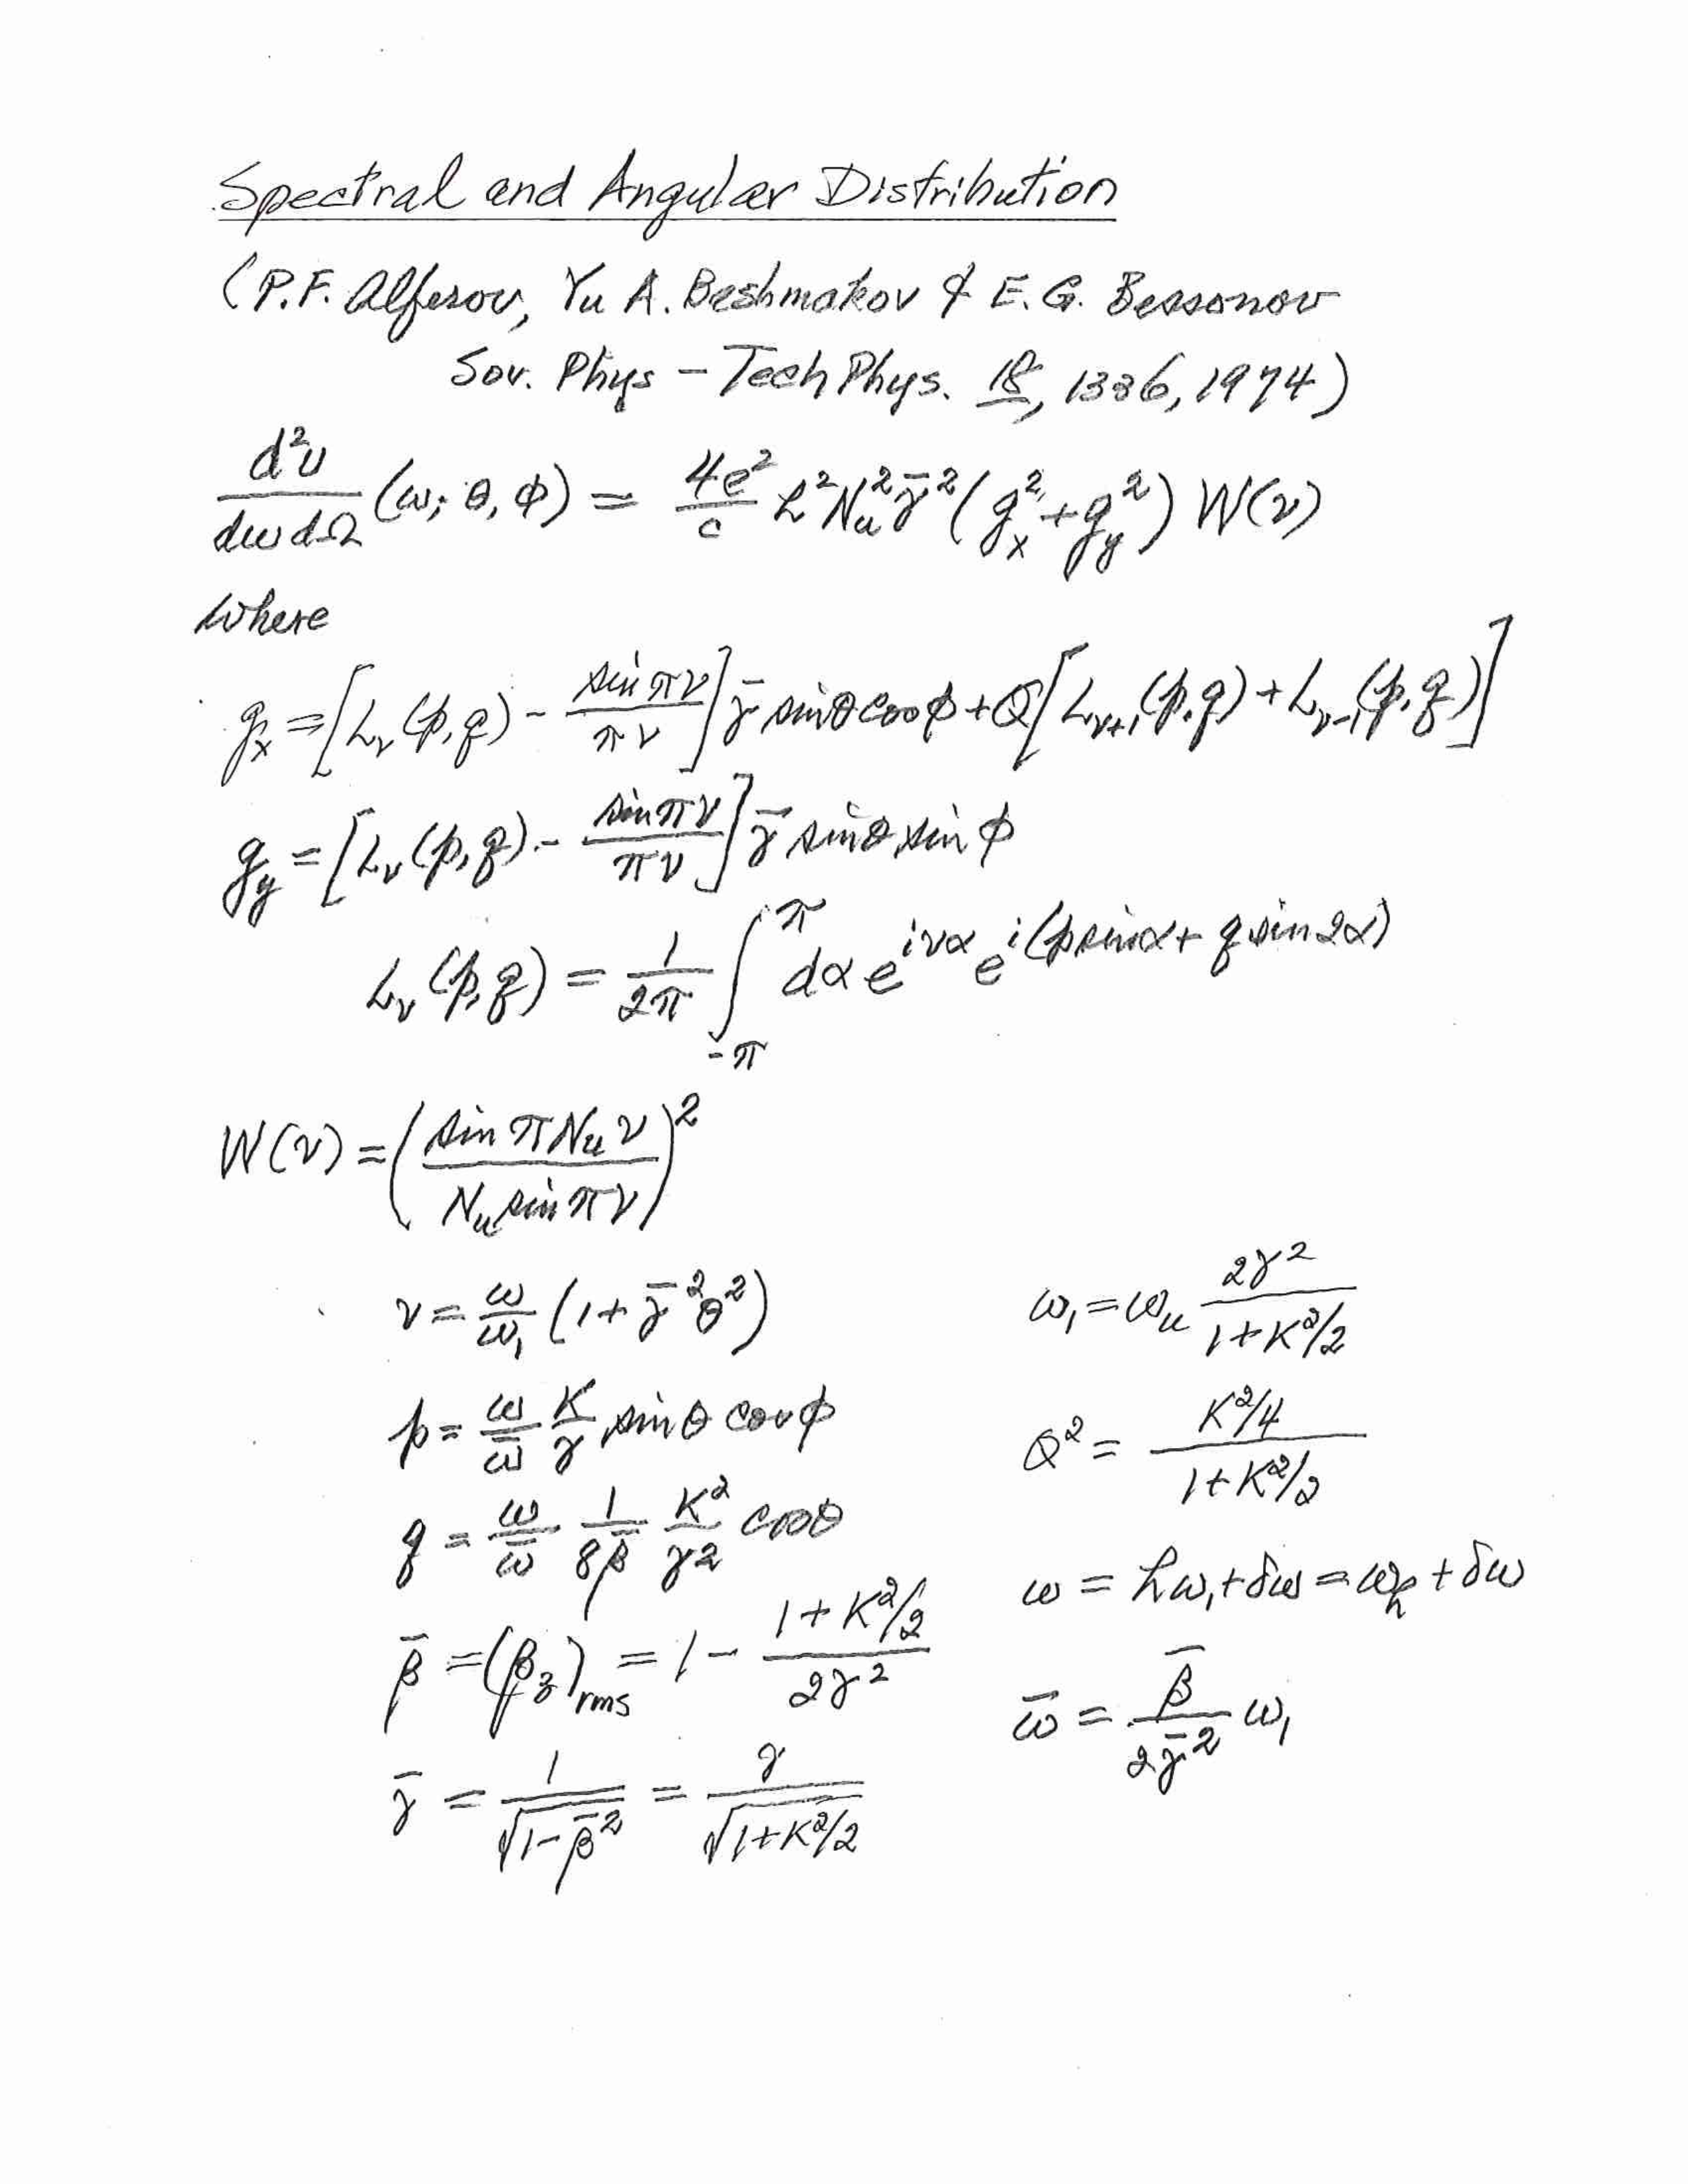 Spectral and Angular Distribution
(P.F. Alferov, Yu A. Beshmakov & E.G. Bessonov
Sov. Phys - Tech Phys. 18, 1336, 1974)
d²U/dωdΩ (ω; θ, φ) = 4e²/c h² Nᵤ² γ̄² (gₓ² + g_y²) W(ν)
where
gₓ = [L_ν(p,q) - sin πν/πν] γ̄ sinθ cosφ + Q[L_ν+1(p,q) + L_ν-1(p,q)]
g_y = [L_ν(p,q) - sin πν/πν] γ̄ sinθ sin φ
L_ν(p,q) = 1/2π ∫_-π^π dα e^iνα e^i(p sinα + q sin2α)
W(ν) = (sin πNᵤν / Nᵤ sin πν)²
ν = ω/ω₁ (1 + γ̄²θ²) ω₁ = ωᵤ 2γ²/(1+K²/2)
p = ω/ω̄ K/γ sinθ cosφ Q² = (K²/4)/(1+K²/2)
q = ω/ω̄ 1/8β̄ K²/γ² cosθ ω = hω₁ + δω = ω_h + δω
β̄ = (β_z)_rms = 1 - (1+K²/2)/2γ² ω̄ = β̄/2γ̄² ω₁
γ̄ = 1/√(1-β̄²) = γ/√(1+K²/2)